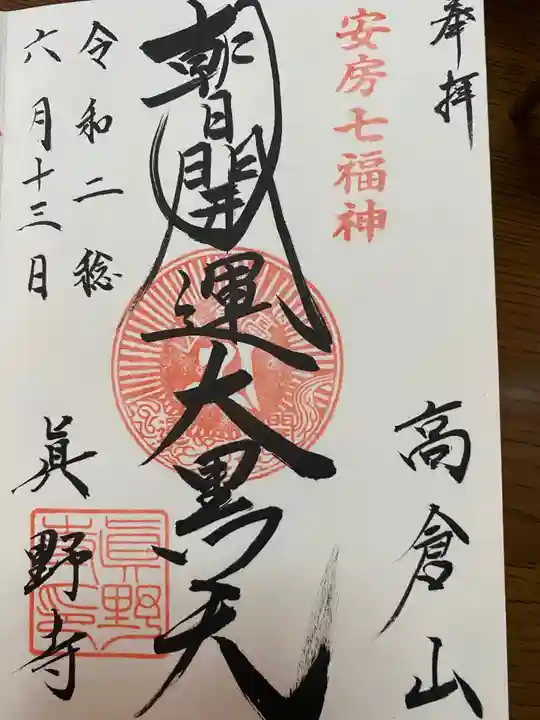 奉拝
高倉山
安房七福神
朝日開運大黒天
令和二稔
六月十三日
眞野寺
眞野寺印